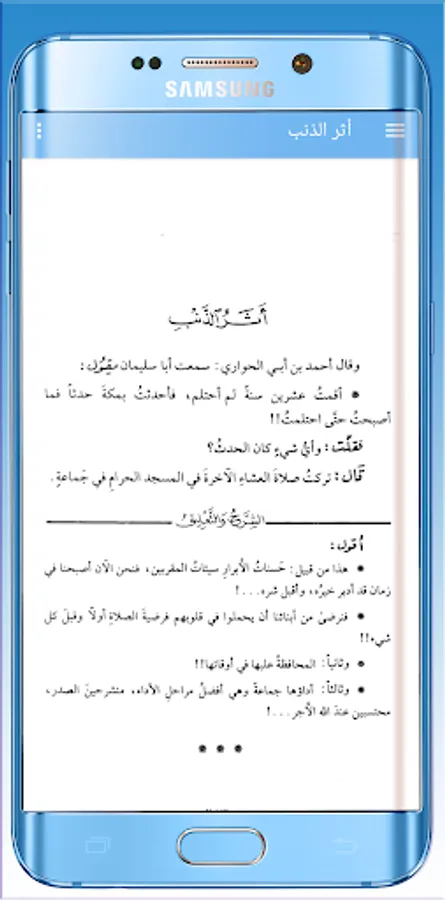 SAMSUNG
أثر الذنب
أَثَرُ الذَّنْبِ
وقال أحمد بن أبي الحواري: سمعت أبا سليمان يقول:
• أقمتُ عشرين سنةً لم أحتلم، فأحدثتُ بمكةَ حدثاً فما
أصبحتُ حتَّى احتلمتُ!!
فقلت: وأيُّ شيءٍ كان الحدثُ؟
قال: تركتُ صلاةَ العشاءِ الآخرةَ في المسجد الحرامِ في جَماعةٍ.
الشرح والتعليق
أقول:
• هذا من قبيل: حَسناتُ الأبرارِ سيئاتُ المقربين، فنحن الآن أصبحنا في
زمان قد أدبر خيرُه، وأقبل شره...!
• فنرضىٰ من أبنائنا أن يحملوا في قلوبهم فرضيةَ الصلاةِ أولاً وقبلَ كل
شيء!!
• وثانياً: المحافظةُ عليها في أوقاتها!!
• وثالثاً: أداؤها جماعةً وهي أفضلُ مراحلِ الأداء، منشرحينَ الصدر،
محتسبين عندَ الله الأجر...!
• • •